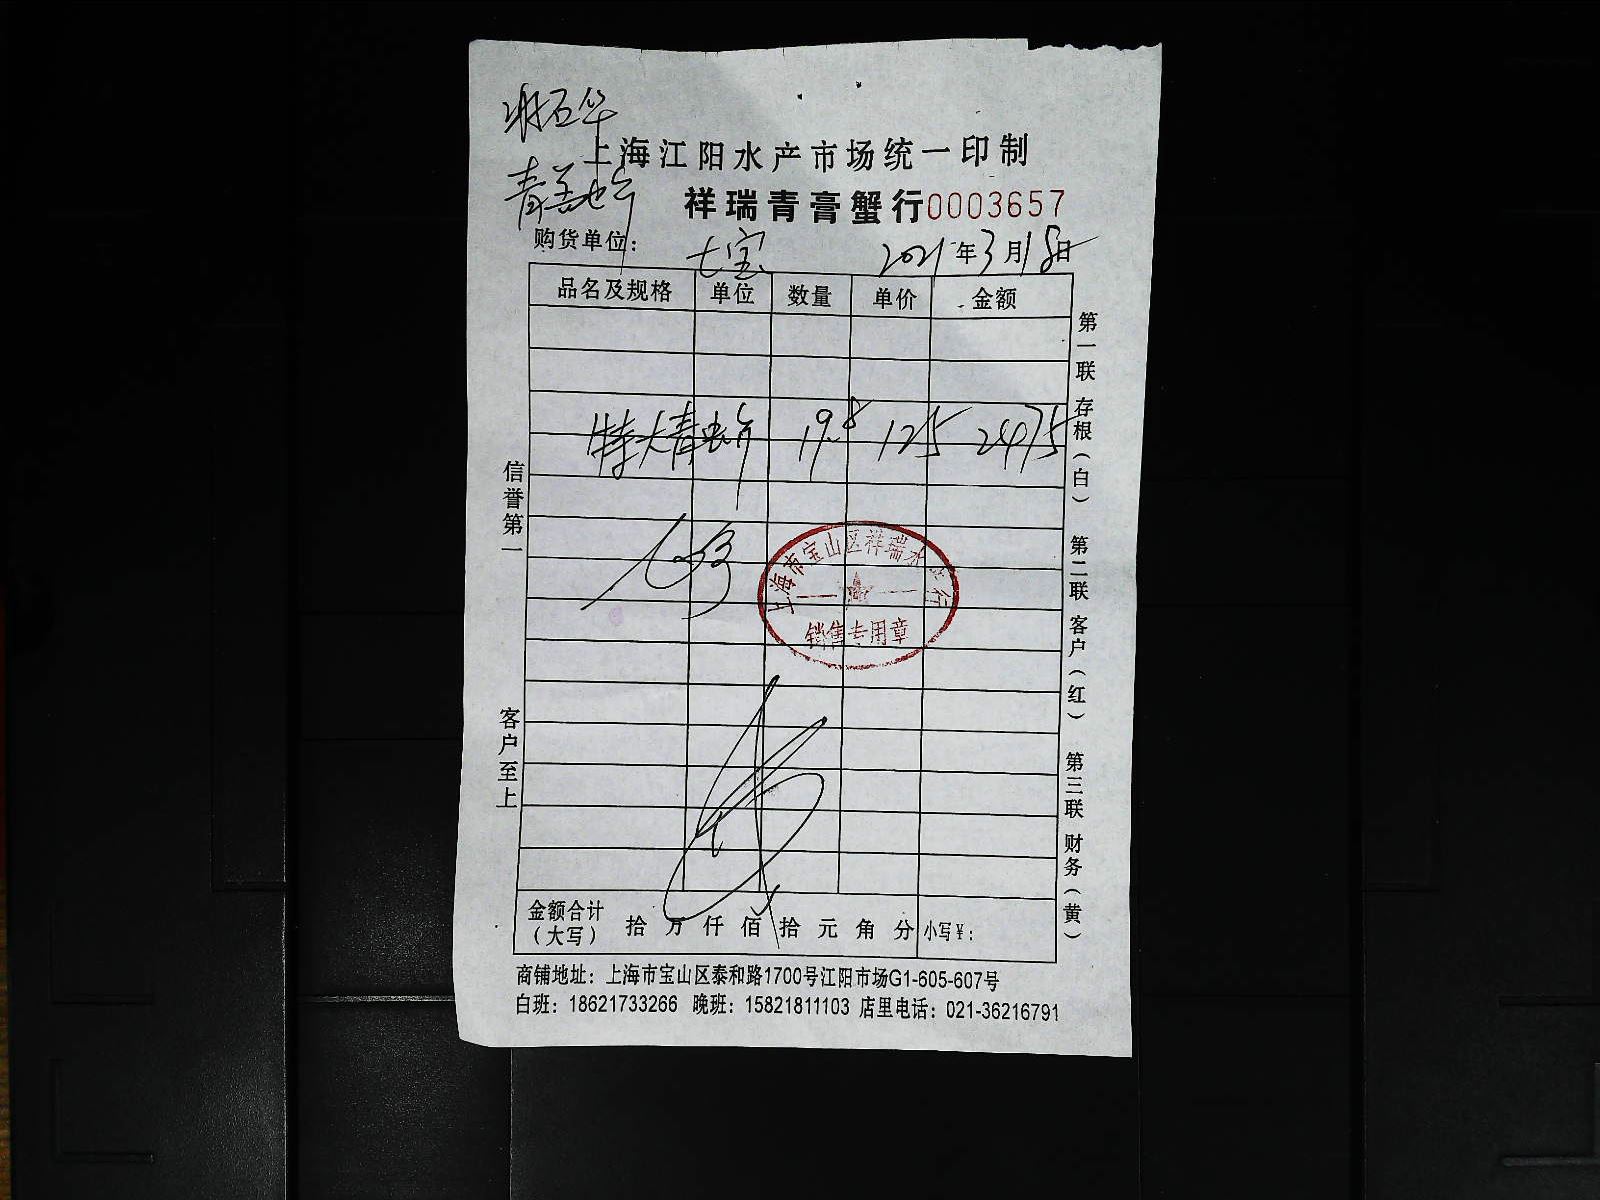 上海江阳水产市场统一印制
祥瑞青膏蟹行 0003657
购货单位： 七宝 2021年3月18日
品名及规格 单位 数量 单价 金额
特大青 19.8 125 2475
上海市宝山区祥瑞水产行
销售专用章
信誉第一
客户至上
第一联 存根（白） 第二联 客户（红） 第三联 财务（黄）
金额合计（大写） 拾 万 仟 佰 拾 元 角 分 小写￥：
商铺地址：上海市宝山区泰和路1700号江阳市场G1-605-607号
白班：18621733266 晚班：15821811103 店里电话：021-36216791